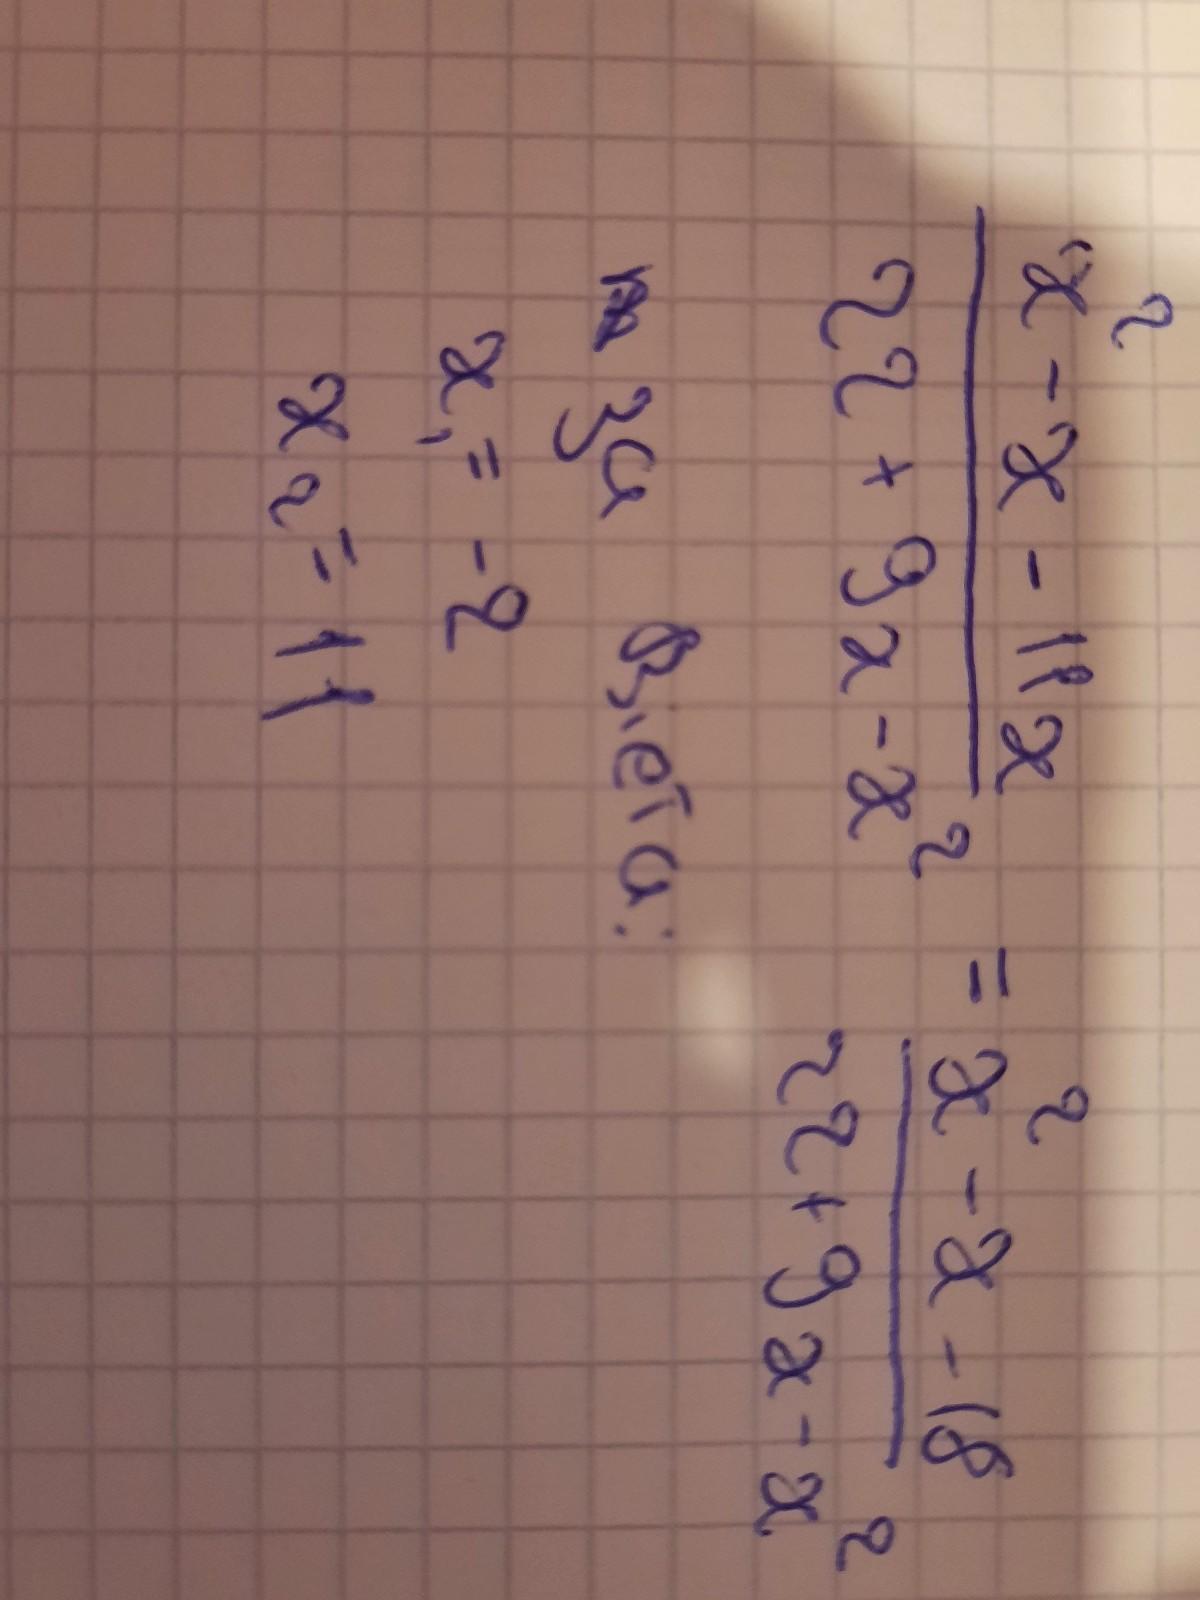 x² - x - 11x / 22 + 9x - x² = x² - x - 18 / 22 + 9x - x²
за Вієта:
x₁ = -2
x₂ = 11